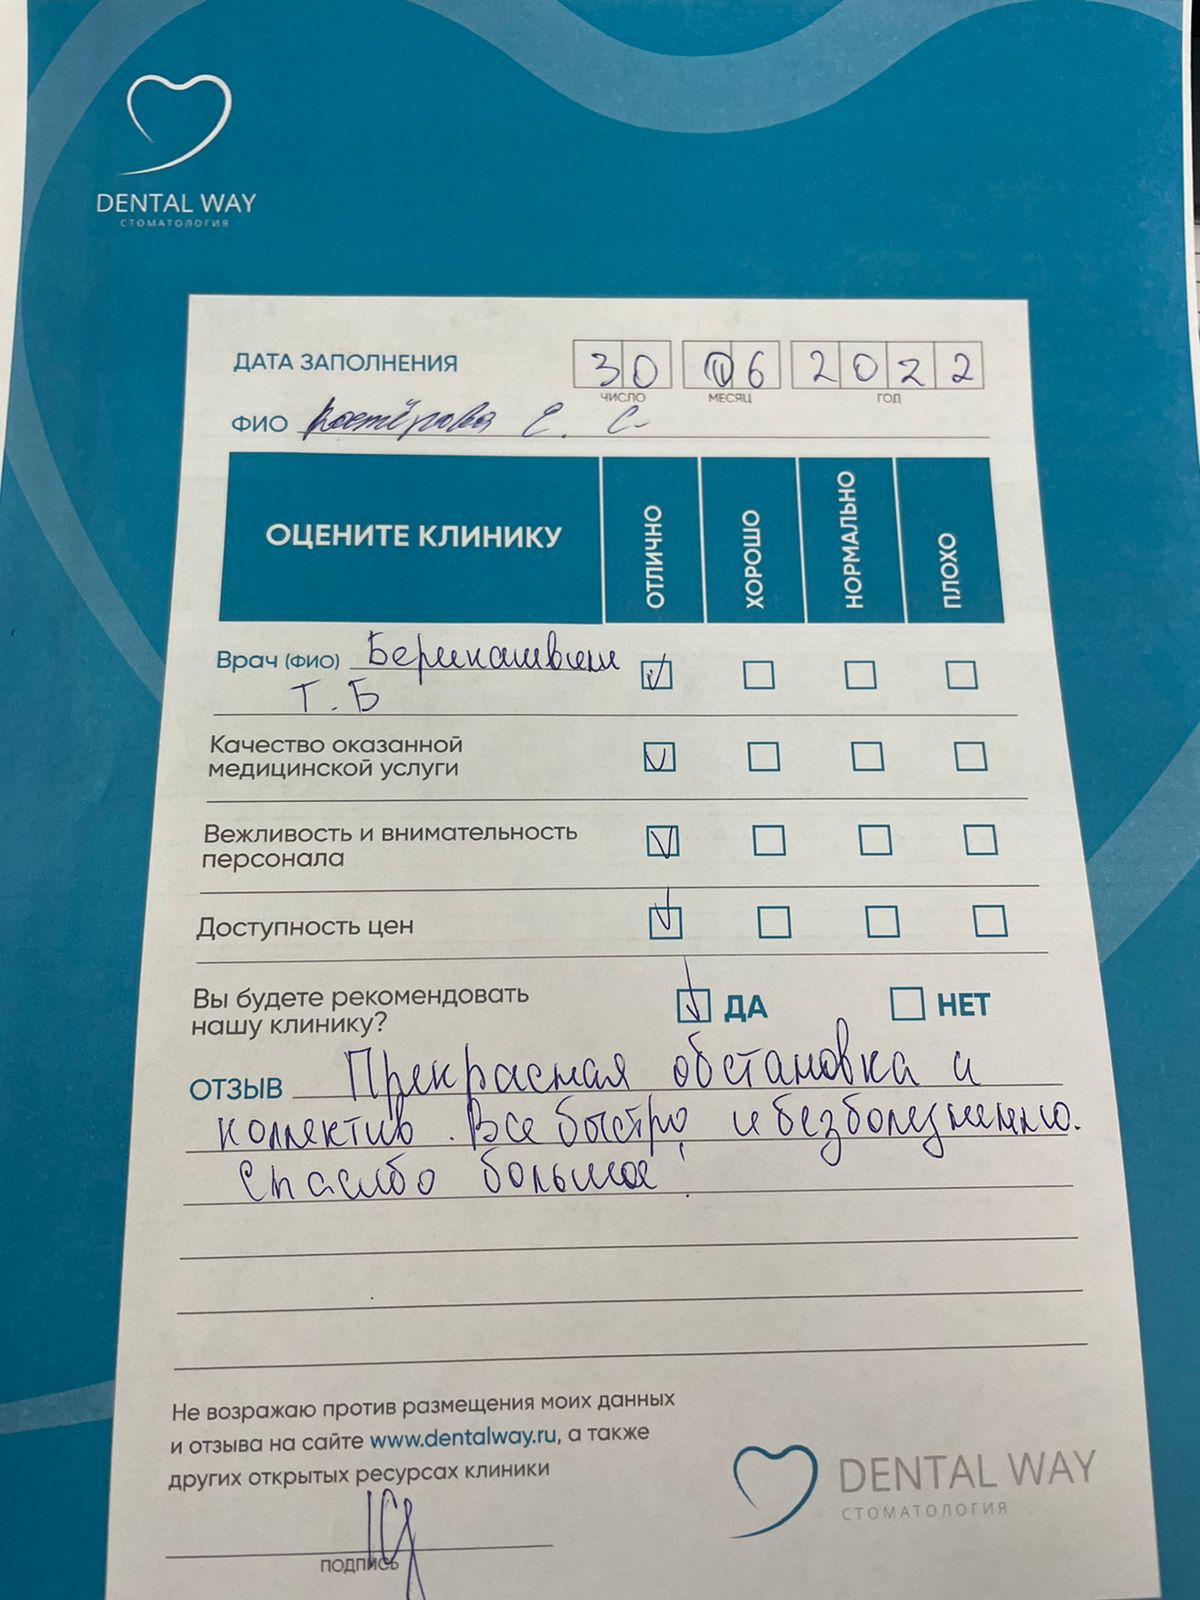 DENTAL WAY
СТОМАТОЛОГИЯ
ДАТА ЗАПОЛНЕНИЯ 30 06 2022
ЧИСЛО МЕСЯЦ ГОД
ФИО Костёрова Е. С.
ОЦЕНИТЕ КЛИНИКУ ОТЛИЧНО ХОРОШО НОРМАЛЬНО ПЛОХО
Врач (ФИО) Берикашвили
Т.Б
Качество оказанной
медицинской услуги
Вежливость и внимательность
персонала
Доступность цен
Вы будете рекомендовать
нашу клинику? ДА НЕТ
ОТЗЫВ Прекрасная обстановка и
коллектив. Все быстро и безболезненно.
Спасибо большое!
Не возражаю против размещения моих данных
и отзыва на сайте www.dentalway.ru, а также
других открытых ресурсах клиники
ПОДПИСЬ
DENTAL WAY
СТОМАТОЛОГИЯ